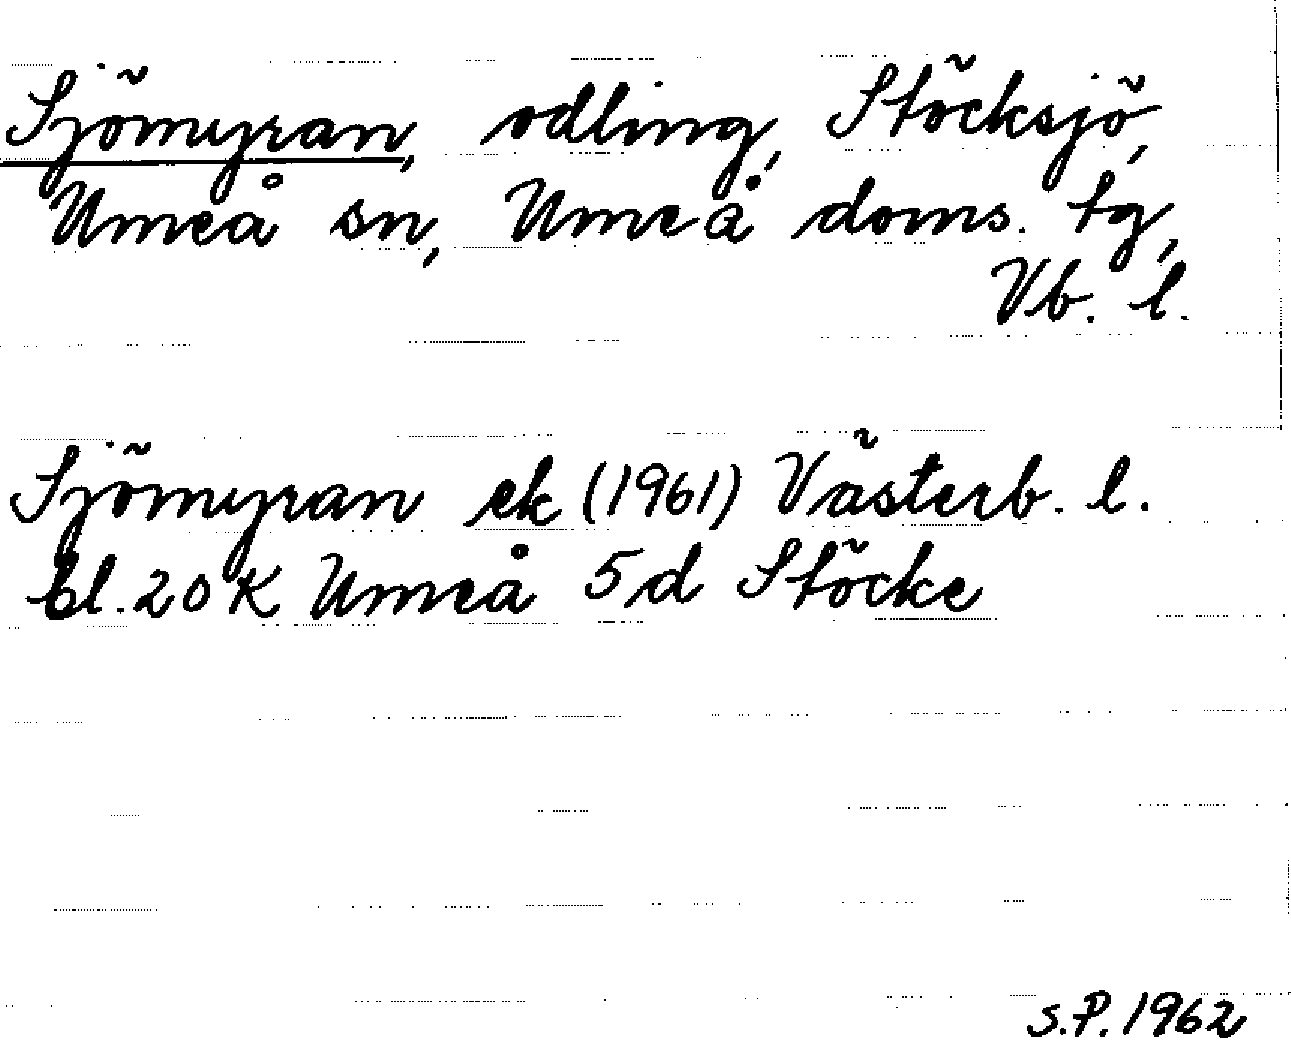 Sjömyran, odling, Stöcksjö,
Umeå sn, Umeå doms. tg,
Vb. l.
Sjömyran ek (1961) Västerb. l.
bl. 20 K Umeå 5d Stöcke
S.P. 1962